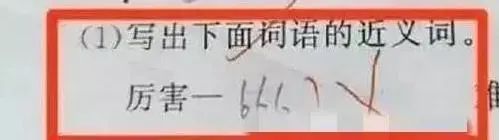 (1)写出下面词语的近义词。
厉害—666